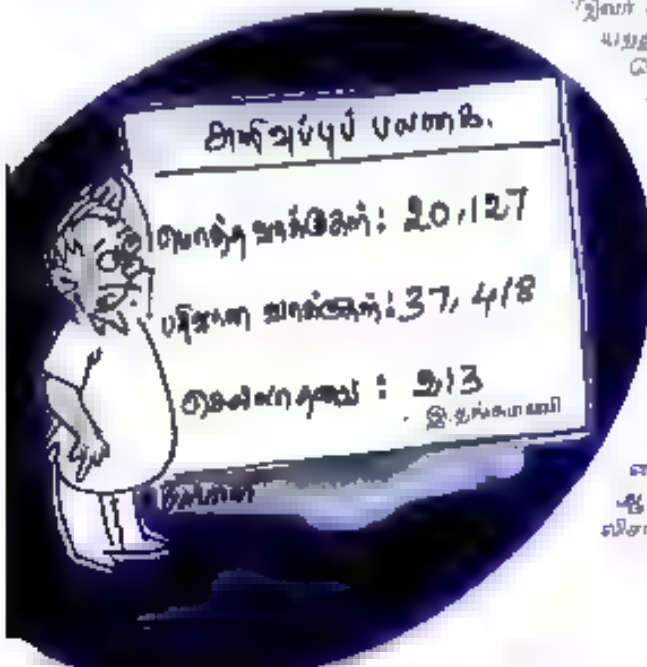 அறிவிப்புப் பலகை.
மொத்த வாக்குகள்: 20,127
பதிவான வாக்குகள்: 37,418
செல்லாதவை : 213
இ.தங்கமணி